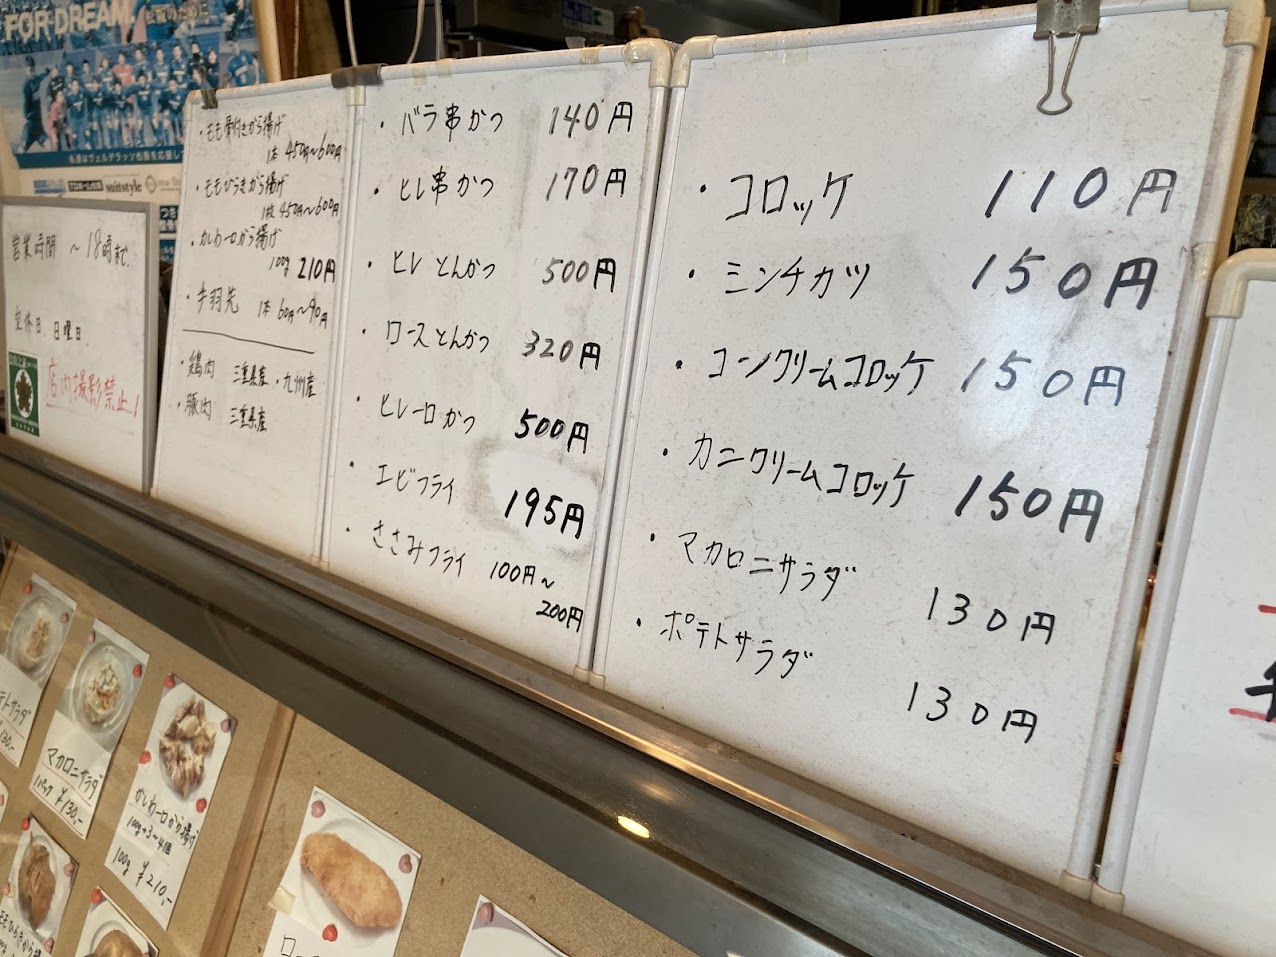 FOR DREAM.
営業時間 ～18時まで
定休日.日曜日.
店内撮影禁止!
・モモ骨付きから揚げ
1本 450円～600円
・モモひらきから揚げ
1枚 450円～600円
・かしわ一口から揚げ
100g 210円
・手羽先 1本 60円～90円
・鶏肉 三重県産・九州産
・豚肉 三重県産
・バラ串かつ 140円
・ヒレ串かつ 170円
・ヒレとんかつ 500円
・ロースとんかつ 320円
・ヒレ一口かつ 500円
・エビフライ 195円
・ささみフライ 100円～
200円
・コロッケ 110円
・ミンチカツ 150円
・コーンクリームコロッケ 150円
・カニクリームコロッケ 150円
・マカロニサラダ 130円
・ポテトサラダ 130円
テトサラダ
130.-
マカロニサラダ
1パック ¥130.-
かしわ一口から揚げ
100g→3～4個
100g ¥210.-
モモひらきから揚
ロー